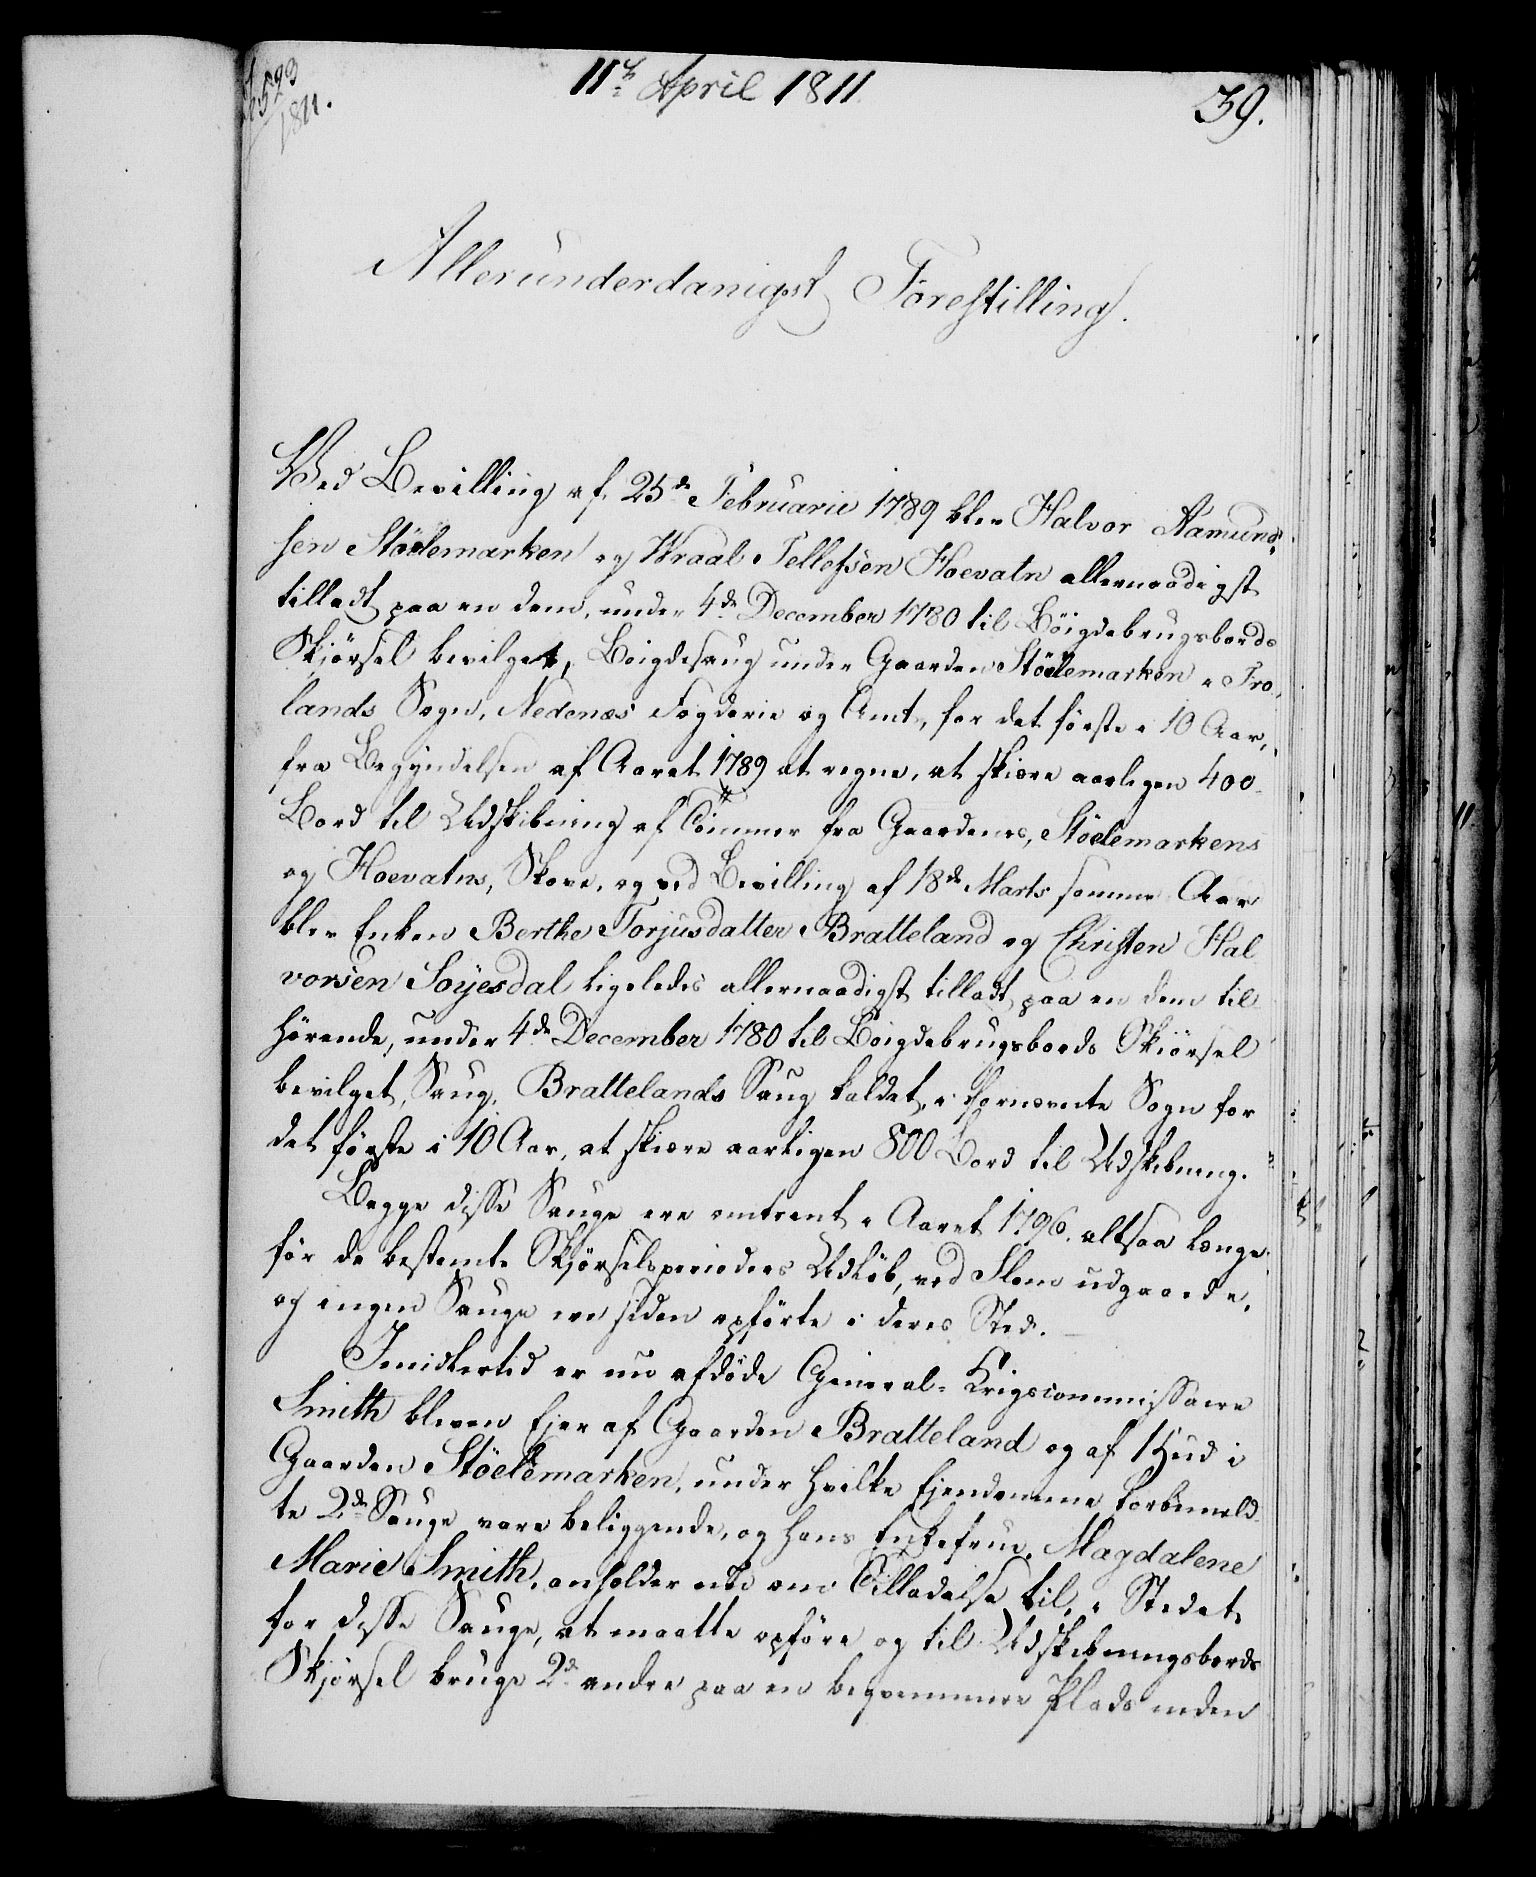 2593
1811.
11te April 1811
39.
Allerunderdanigst Forestilling.
Ved Bevilling af 25de Februarii 1789 blev Halvor Aamund-
sen Stöelemarken og Wraal Tellefsen Hoevatn allernaadigst
tilladt paa en dem, under 4de December 1780 til Böigdebrugsbords
Skjørsel bevilget, Böigdesaug under Gaarden Stöelemarken i Fro-
lands Sogn, Nedenæs Fogderie og Amt, for det første i 10 Aar,
fra Begyndelsen af Aaret 1789 at regne, at skiære aarligen 400
Bord til Udskibning af Tømmer fra Gaardenes, Stöelemarkens
og Hoevatns, Skove, og ved Bevilling af 18de Marts samme Aar
blev Enken Berthe Torjusdatter Bratteland og Christen Hal-
vorsen Soyesdal ligeledes allernaadigst tilladt paa en dem til-
hørende, under 4de December 1780 til Böigdebrugsbords Skiørsel
bevilget, Saug, Brattelands Saug kaldet, i fornævnte Sogn for
det første i 10 Aar, at skiære aarligen 800 Bord til Udskibning.
Begge disse Sauge ere omtrent i Aaret 1796, altsaa længe
før de bestemte Skjørselsperioders Udløb, ved Flom udgaaede,
og ingen Sauge ere siden opførte i deres Sted.
Imidlertid er nu afdøde General-Krigscommissaire
Smith bleven Ejer af Gaarden Bratteland og af 1 Hud i
Gaarden Stöelemarken, under hvilke Ejendomme forbemeld-
te 2de Sauge vare beliggende, og hans Enkefrue, Magdalene
Marie Smith, anholder nu om Tilladelse til, i Stedet
for disse Sauge, at maatte opføre og til Udskibningsbords
Skjørsel bruge 2de andre paa en beqvemmere Plads inden